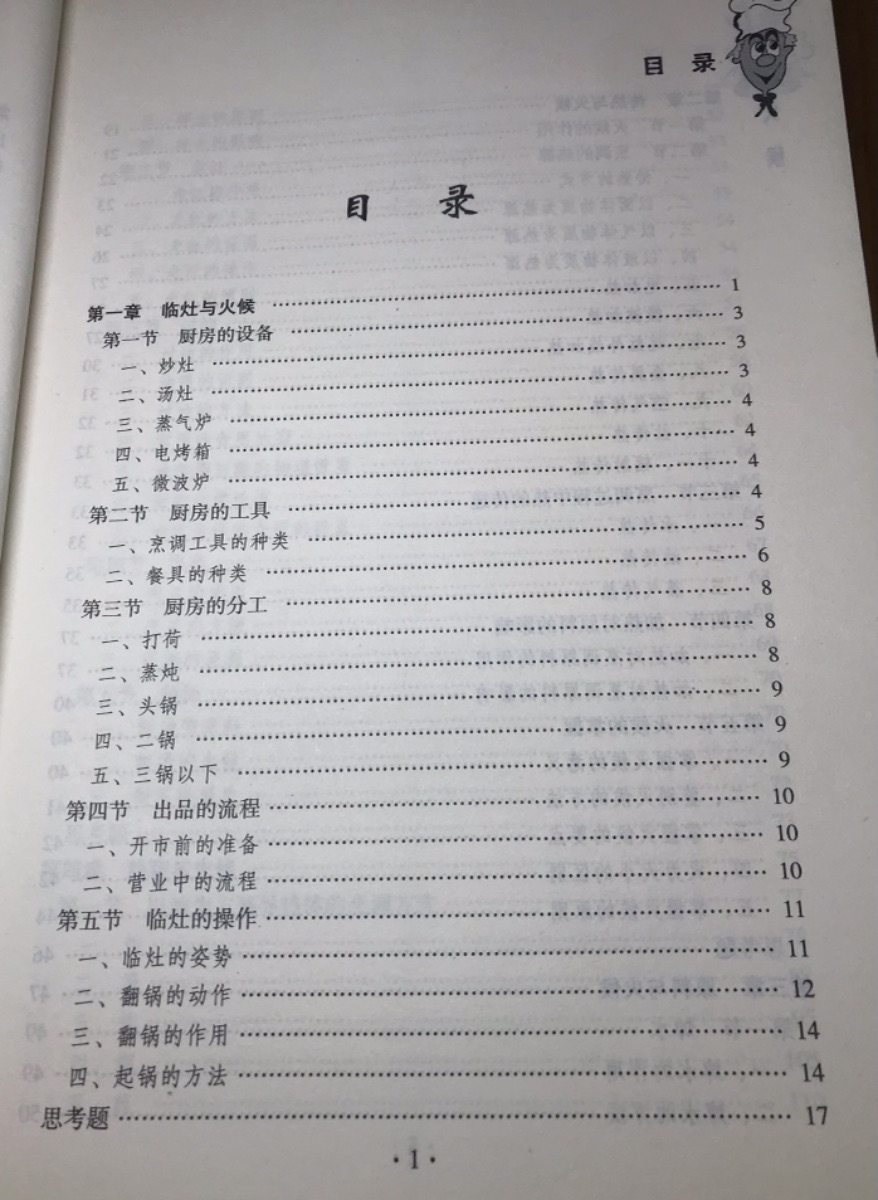 目 录
目 录
第一章 临灶与火候 …… 1
第一节 厨房的设备 …… 3
一、炒灶 …… 3
二、汤灶 …… 3
三、蒸气炉 …… 4
四、电烤箱 …… 4
五、微波炉 …… 4
第二节 厨房的工具 …… 4
一、烹调工具的种类 …… 5
二、餐具的种类 …… 6
第三节 厨房的分工 …… 8
一、打荷 …… 8
二、蒸炖 …… 8
三、头锅 …… 9
四、二锅 …… 9
五、三锅以下 …… 9
第四节 出品的流程 …… 10
一、开市前的准备 …… 10
二、营业中的流程 …… 10
第五节 临灶的操作 …… 11
一、临灶的姿势 …… 11
二、翻锅的动作 …… 12
三、翻锅的作用 …… 14
四、起锅的方法 …… 14
思考题 …… 17
·1·